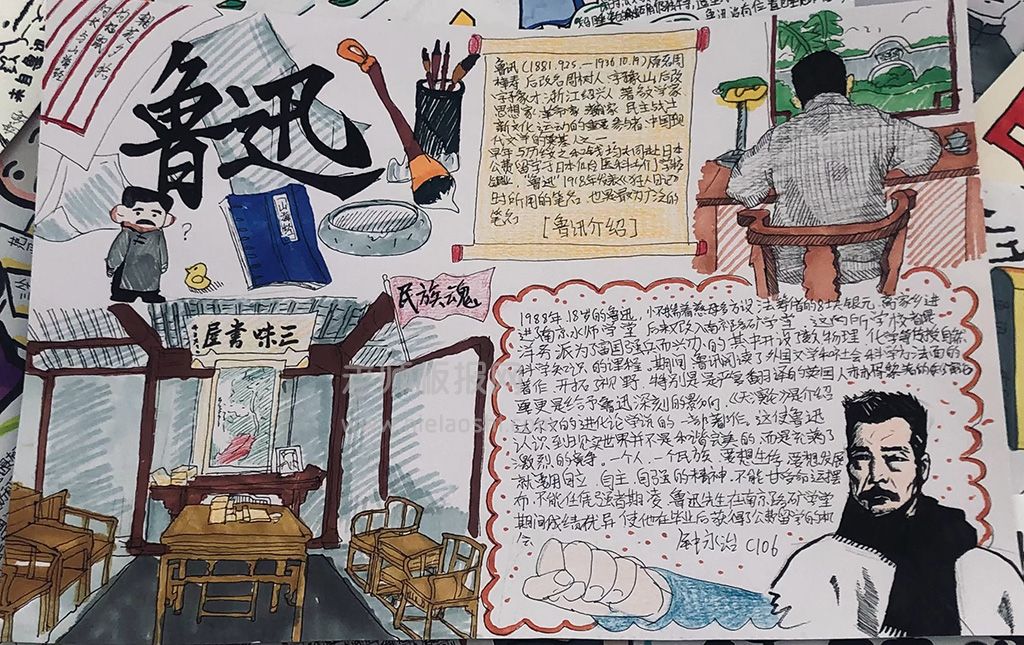 鲁迅
山海经
?
鲁迅(1881.9.25.—1936.10.19)原名周
樟寿 后改名周树人 字豫山 后改
字豫才,浙江绍兴人 著名文学家
思想家 革命家 民主战士
新文化运动的重要参与者.中国现
代文学的奠基人
同赴日本
公费留学于日本仙台医科专门学校
肄业,"鲁迅"1918年发表《狂人日记》
时所用的笔名 也是最为广泛的
笔名
[鲁讯介绍]
民族魂
三味書屋
18岁的鲁迅,怀揣着母亲多方设法筹借的8块银元,离家乡进
进南京水师学堂 后来又改入南京路矿学堂 这两所学校都是
洋务派为了富国强兵而兴办的 其中开设了数.物理 化学等传授自然
科学知识的课程,期间 鲁讯阅读了外国文学和社会科学方面的
著作 开拓视野,特别是严复翻译的英国人
更是给予鲁迅深刻的影响,《天演论》是介绍
达尔文的进化论学说的一部著作,这使鲁迅
认识到现实世界并不是和谐完美的 而是充满了
激烈的竞争.一个人,一个民族 要想生存,要想发展
就要有自立,自主,自强的精神,不能甘受命运摆
布,不能任凭强者期凌 鲁迅先生在南京路矿学堂
期间成绩优异 使他在毕业后获得了公费留学的机
会
C106